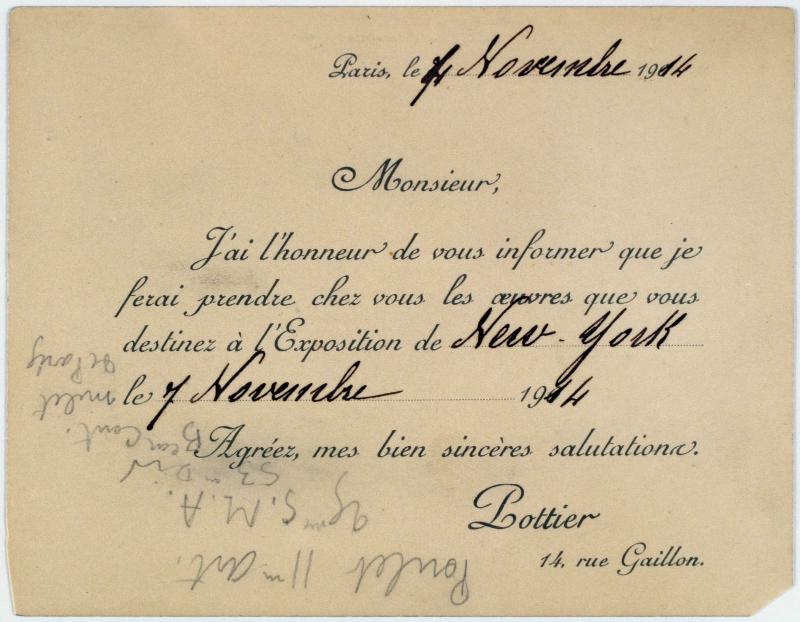 Paris, le 4 Novembre 1914
Monsieur,
J'ai l'honneur de vous informer que je
ferai prendre chez vous les œuvres que vous
destinez à l'Exposition de New-York
le 7 Novembre 1914
Agréez, mes bien sincères salutations.
Pottier
14, rue Gaillon.
Poulet 11m art.
S. M. A.
53m Div